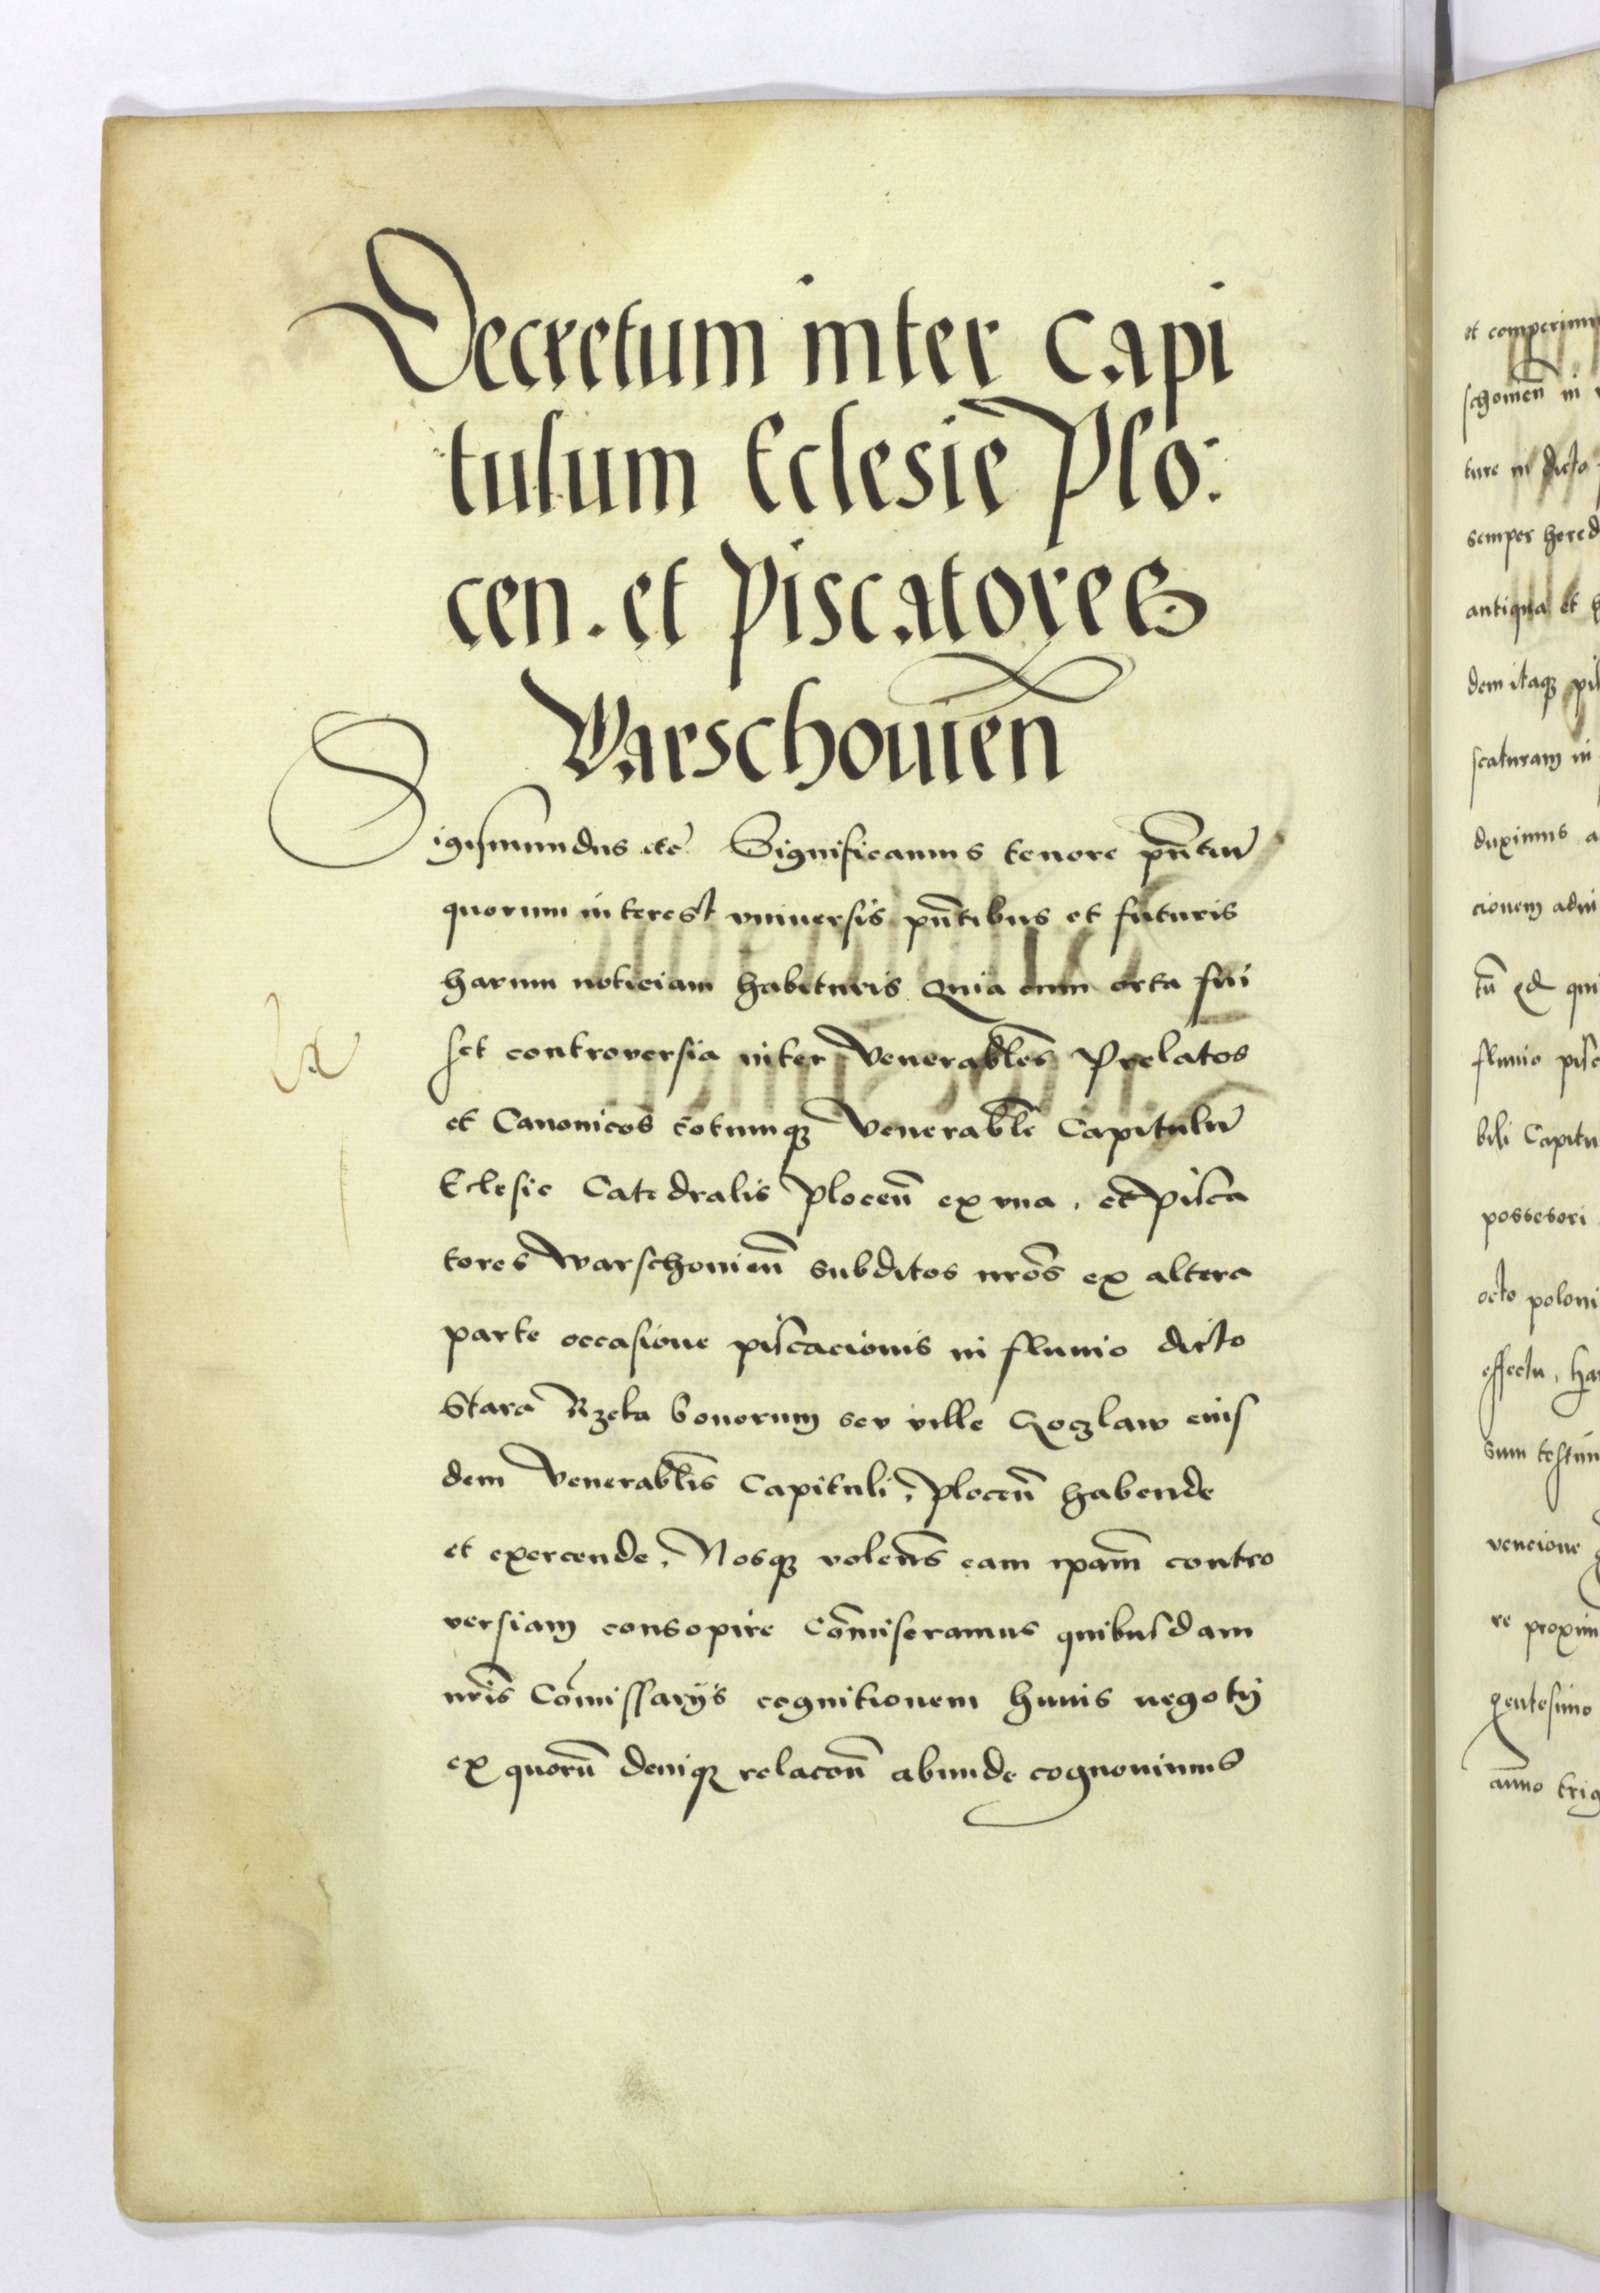 Decretum inter Capi
tulum Eclesie Plo:
cen. et Piscatores
Warschouien̄
Sigismundus etc̄ Significamus tenore pn̄tiū
quorum interest vniuersis pn̄tibus et futuris
harum noticiam habituris Quia cum orta fui
set controversia inter Venerabl̄es Prelatos
et Canonicos totumqȝ Venerabl̄e Capitulū
Eclesie Catedralis Plocen̄ ex vna, et Pisca
tores Warschouien̄ subditos nrōs ex altera
parte occasione piscacionis in fluuio dicto
Stara Rzeka bonorum sev ville eius
dem Venerabl̄is Capituli, Plocen̄ habende
et exercende, Nosqȝ volen̄s eam ipam̄ contro
versiam consopire Com̄iseramus quibusdam
nrīs Com̄issarÿs cognitionem huius negotÿ
ex quorū deniqȝ relacōn̄ abunde cognouimus
et comperimu
schouien̄ in
ture in dicto
semper hered
antiqua et
dem itaqȝ pi
scaturam in
duximus a
cionem adm
qui
fluuio pisc
bili Capitu
possesori
octo poloni
effectu, ha
sum testim
vencione
re proxim
gentesimo
anno trig